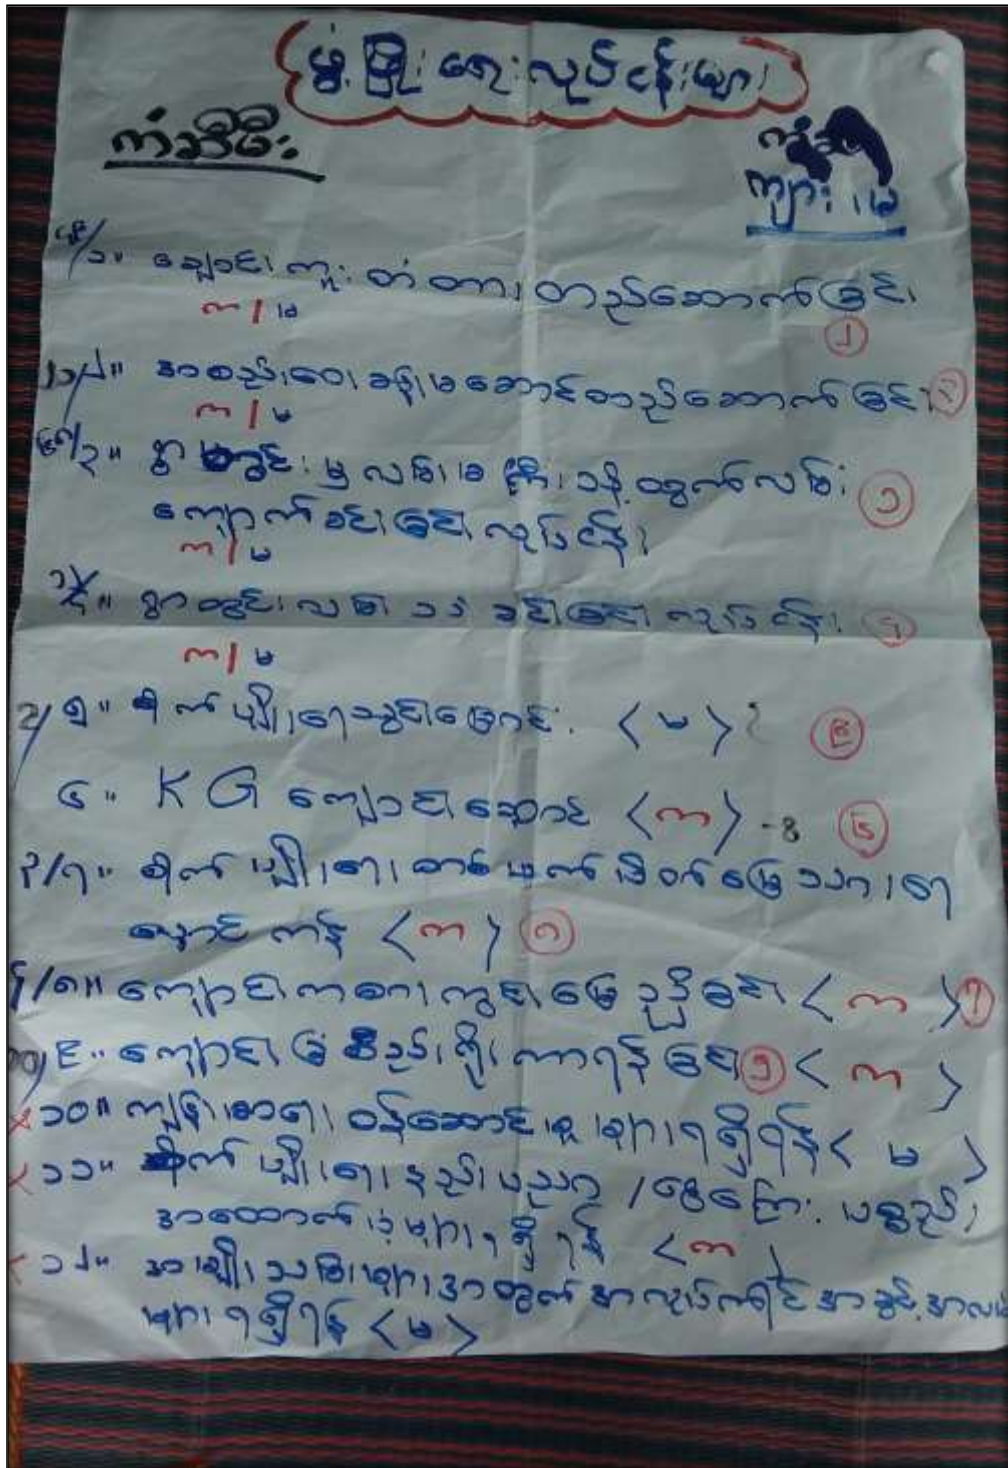 ဖွံ့ဖြိုးရေးလုပ်ငန်းများ
ကံဆီမီး
ကျား၊ မ
၁။ ချောင်းကူးတံတား တည်ဆောက်ခြင်း
က / မ
၂
၂။ အစည်းဝေးခန်းမဆောင်တည်ဆောက်ခြင်း
က / မ
၃။ ရွာတွင်းမှ လမ်းမကြီးသို့ ထွက်လမ်း
ကျောက်ခင်းခြင်းလုပ်ငန်း
၁
က / မ
၄။ ရွာတွင်းလမ်း သဲခင်းခြင်းလုပ်ငန်း
က / မ
၅။ စိုက်ပျိုးရေသွင်းမြောင်း < မ >
၆။ KG ကျောင်းဆောင် < က >
၇။ စိုက်ပျိုးရေး တစ်ဖက်ပိတ်မြေသားရေ
လှောင်ကန် < က > ၈
၈။ ကျောင်းကစားကွင်းမြေညှိခြင်း < က > ၇
၉။ ကျောင်းခြံစည်းရိုးကာရန်ခြင်း < က >
၁၀။ ကျန်းမာရေးဝန်ဆောင်မှုများရရှိရန် < မ >
၁၁။ စိုက်ပျိုးရေးနည်းပညာ / ငွေကြေး ပစ္စည်း
အထောက်ပံ့များရရှိရန် < က >
၁၂။ အမျိုးသမီးများအတွက် အလုပ်အကိုင်အခွင့်အလမ်း
များရရှိရန် < မ >